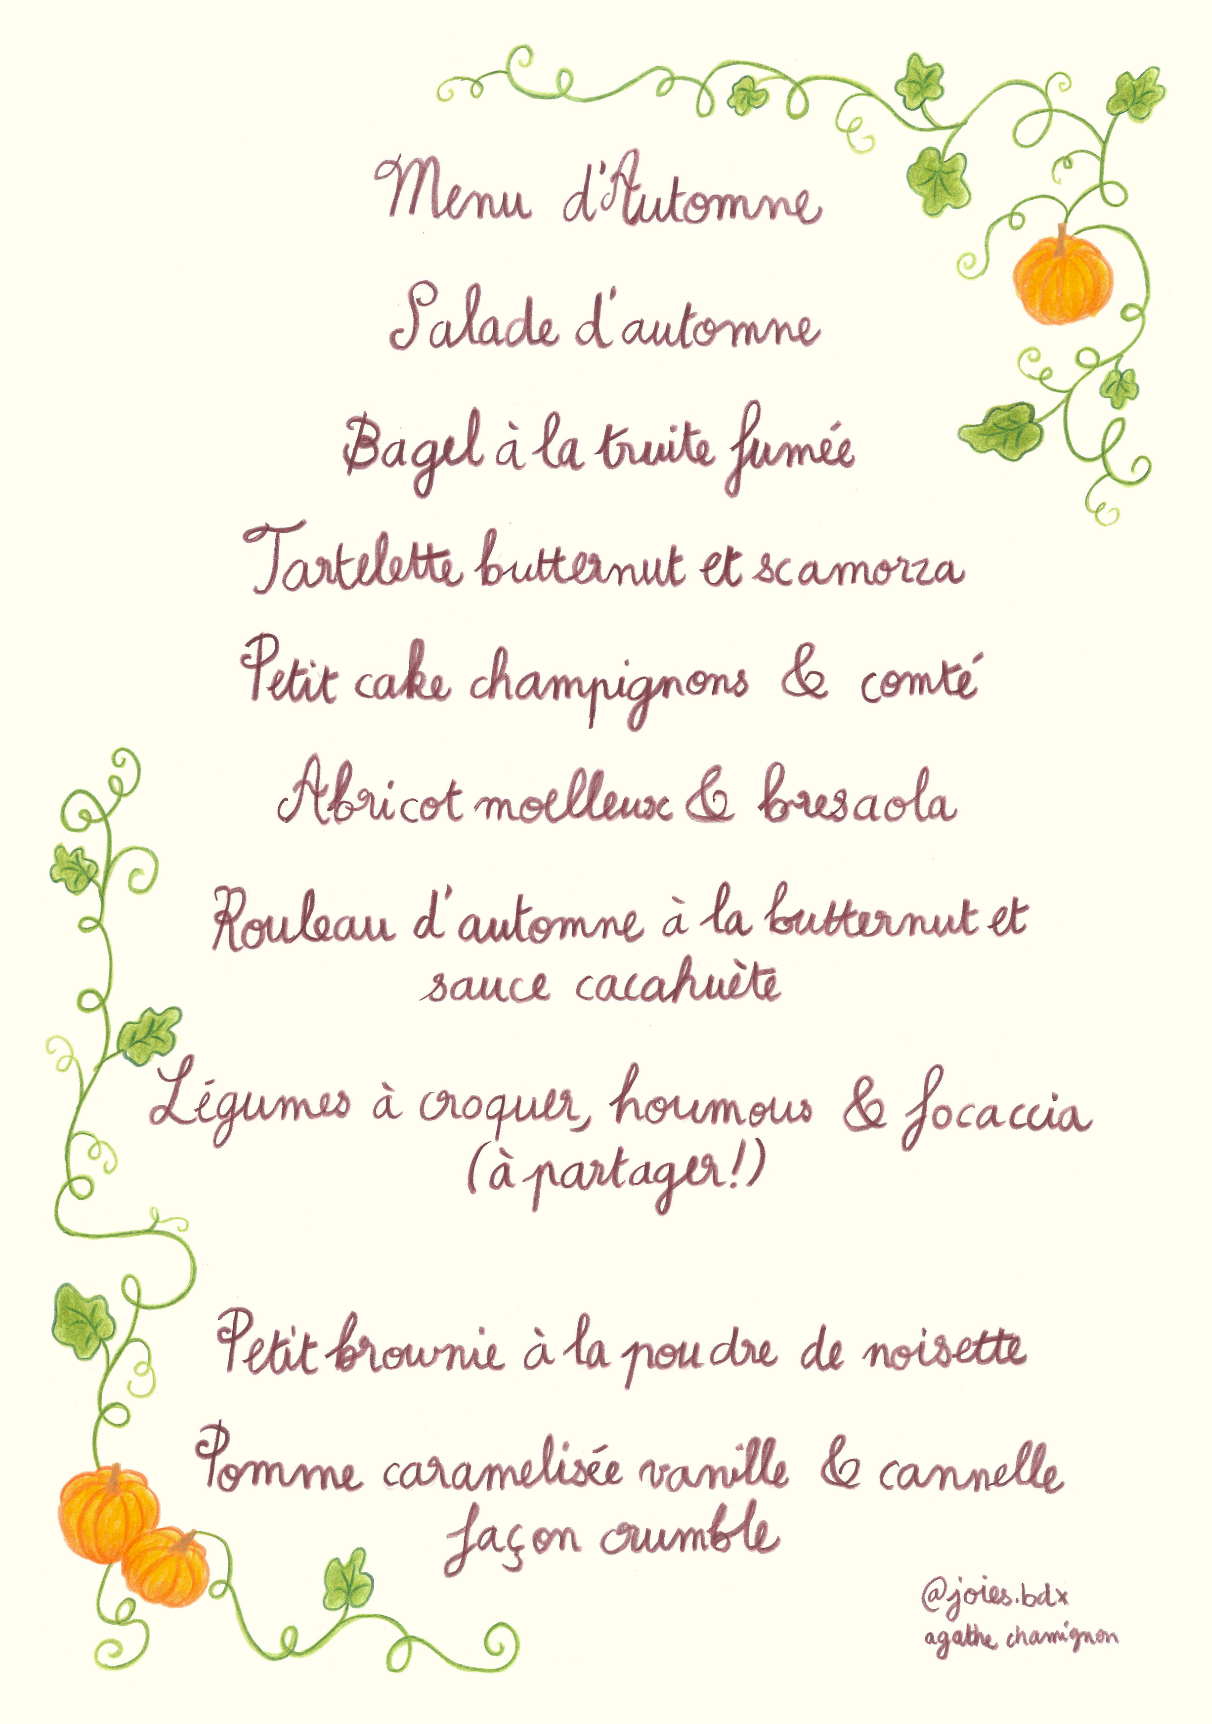 Menu d'Automne
Salade d'automne
Bagel à la truite fumée
Tartelette butternut et scamorza
Petit cake champignons & comté
Abricot moelleux & bresaola
Rouleau d'automne à la butternut et
sauce cacahuète
Légumes à croquer, houmous & focaccia
(à partager!)
Petit brownie à la poudre de noisette
Pomme caramelisée vanille & cannelle
façon crumble
@joies.bdx
agathe chamignon